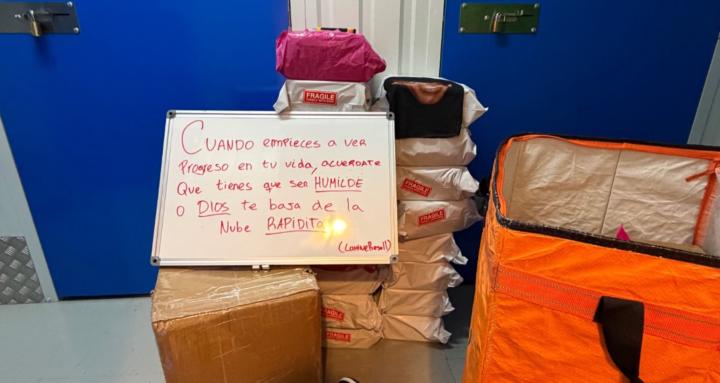 FRAGILE
CUANDO empieces a ver
Progreso en tu vida, acuerdate
Que tienes que ser HUMILDE
O DIOS te baja de la
Nube RAPIDITO
FRAGILE
FRAGILE
FRAGILE
FRAGILE